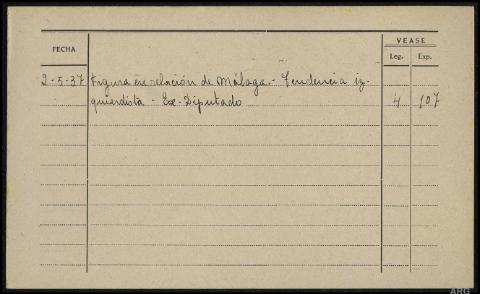 FECHA
VEASE
Leg. Exp.
2-5-37 Figura en relación de Málaga.- Tendencia iz-
quierdista - Ex-Diputado 4 107
ARG